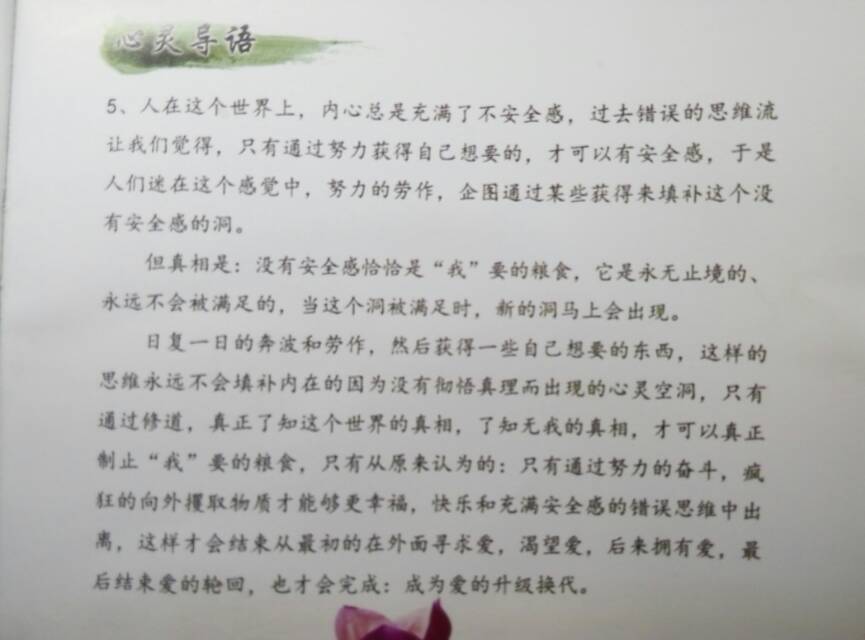 心灵导语
5、人在这个世界上，内心总是充满了不安全感，过去错误的思维流
让我们觉得，只有通过努力获得自己想要的，才可以有安全感，于是
人们迷在这个感觉中，努力的劳作，企图通过某些获得来填补这个没
有安全感的洞。
但真相是：没有安全感恰恰是“我”要的粮食，它是永无止境的、
永远不会被满足的，当这个洞被满足时，新的洞马上会出现。
日复一日的奔波和劳作，然后获得一些自己想要的东西，这样的
思维永远不会填补内在的因为没有彻悟真理而出现的心灵空洞，只有
通过修道，真正了知这个世界的真相，了知无我的真相，才可以真正
制止“我”要的粮食，只有从原来认为的：只有通过努力的奋斗，疯
狂的向外攫取物质才能够更幸福，快乐和充满安全感的错误思维中出
离，这样才会结束从最初的在外面寻求爱，渴望爱，后来拥有爱，最
后结束爱的轮回，也才会完成：成为爱的升级换代。